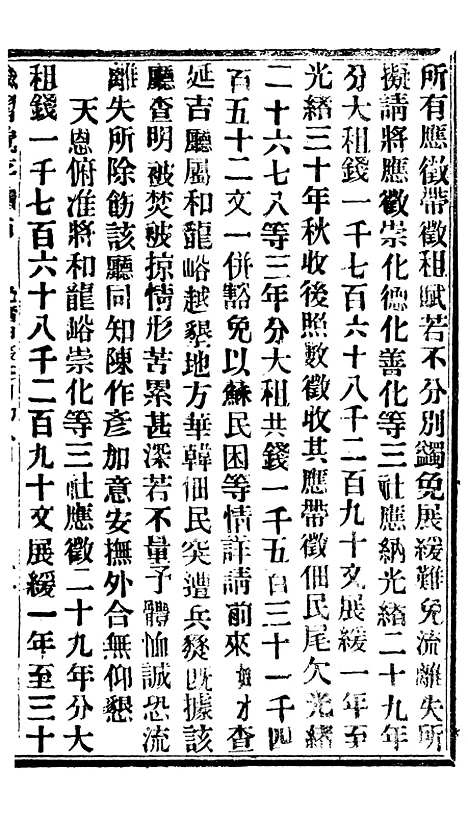 所有應徵帶徵租賦若不分別蠲免展緩難免流離失所
擬請將應徵崇化德化善化等三社應納光緒二十九年
分大租錢一千七百六十八千二百九十文展緩一年至
光緒三十年秋收後照數徵收其應帶徵佃民尾欠光緒
二十六七八等三年分大租共錢一千五百三十一千四
百五十二文一併豁免以蘇民困等情詳請前來奴才查
延吉廳屬和龍峪越墾地方華韓佃民突遭兵燹既據該
廳查明被焚被掠情形苦累甚深若不量予體恤誠恐流
離失所除飭該廳同知陳作彥加意安撫外合無仰懇
天恩俯准將和龍峪崇化等三社應徵二十九年分大
租錢一千七百六十八千二百九十文展緩一年至三十